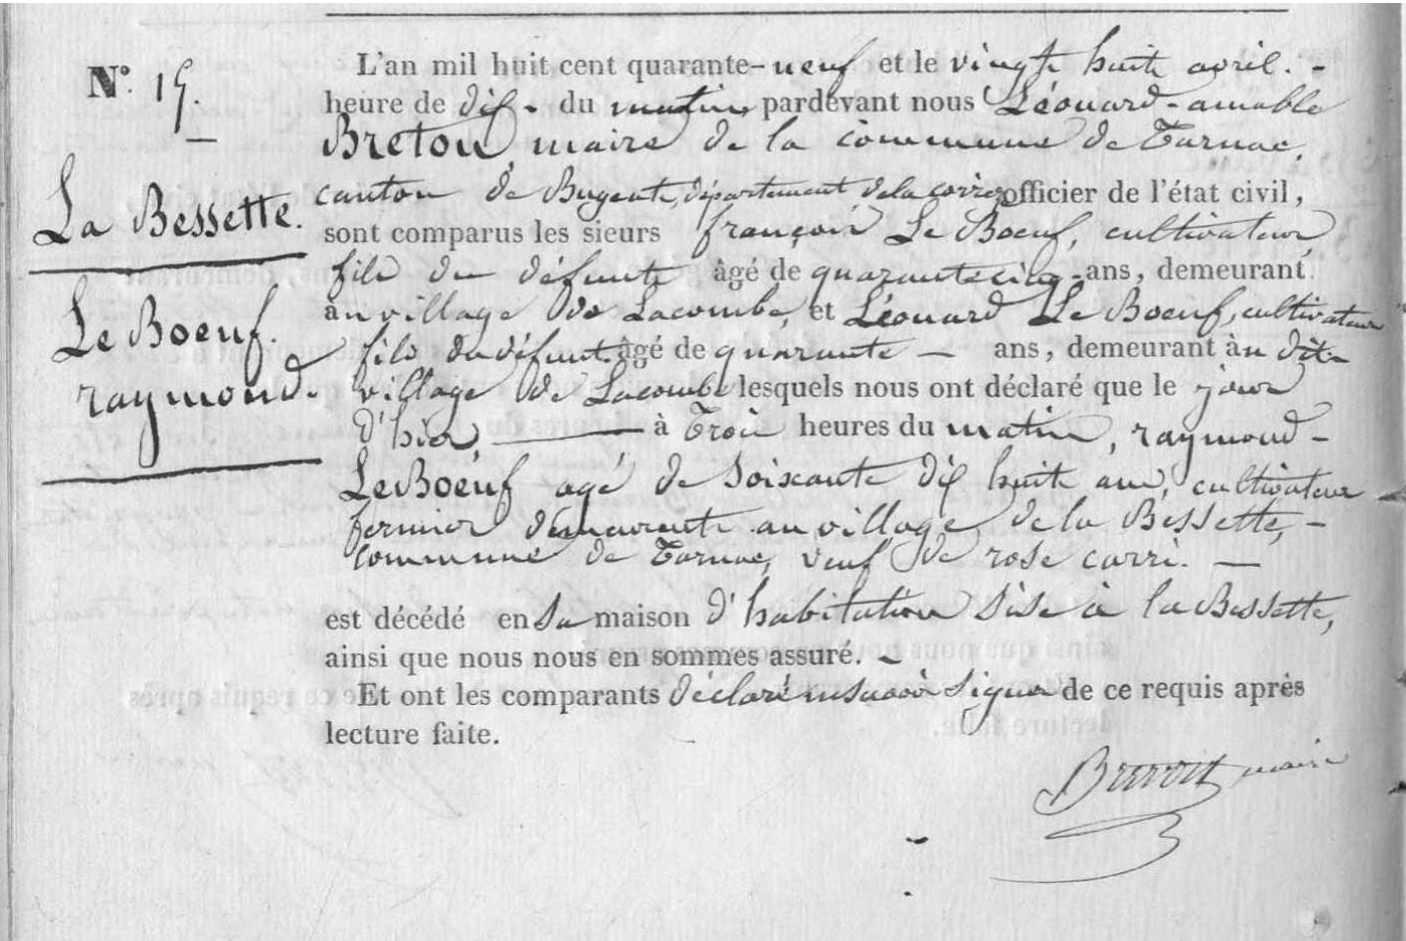 N.° 15.
La Bessette.
Le Boeuf.
raymond.
L'an mil huit cent quarante-neuf et le vingt huit avril.
heure de dix du matin, pardevant nous Léonard-amable
Breton, maire de la commune de Tarnac,
canton de Bugeat, département de la corrèze officier de l'état civil,
sont comparus les sieurs françois Le Boeuf, cultivateur,
fils du défunt âgé de quarante cinq ans, demeurant
au village de Lacombe, et Léonard Le Boeuf, cultivateur
fils du défunt âgé de quarante — ans, demeurant àu dit
village de Lacombe lesquels nous ont déclaré que le jour
d'hier, — à Trois heures du matin, raymond-
Le Boeuf agé de soixante dix huit ans, cultivateur
fermier demeurant au village de la Bessette, -
commune de Tarnac, veuf de rose carri. —
est décédé en sa maison d'habitation sise à la Bessette,
ainsi que nous nous en sommes assuré.
Et ont les comparants déclaré ne savoir signer de ce requis après
lecture faite.
maire